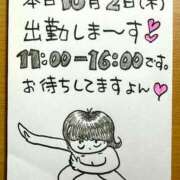 本日10月2日(木)
出勤しま〜す
11:00-16:00です。
お待ちしてますょん